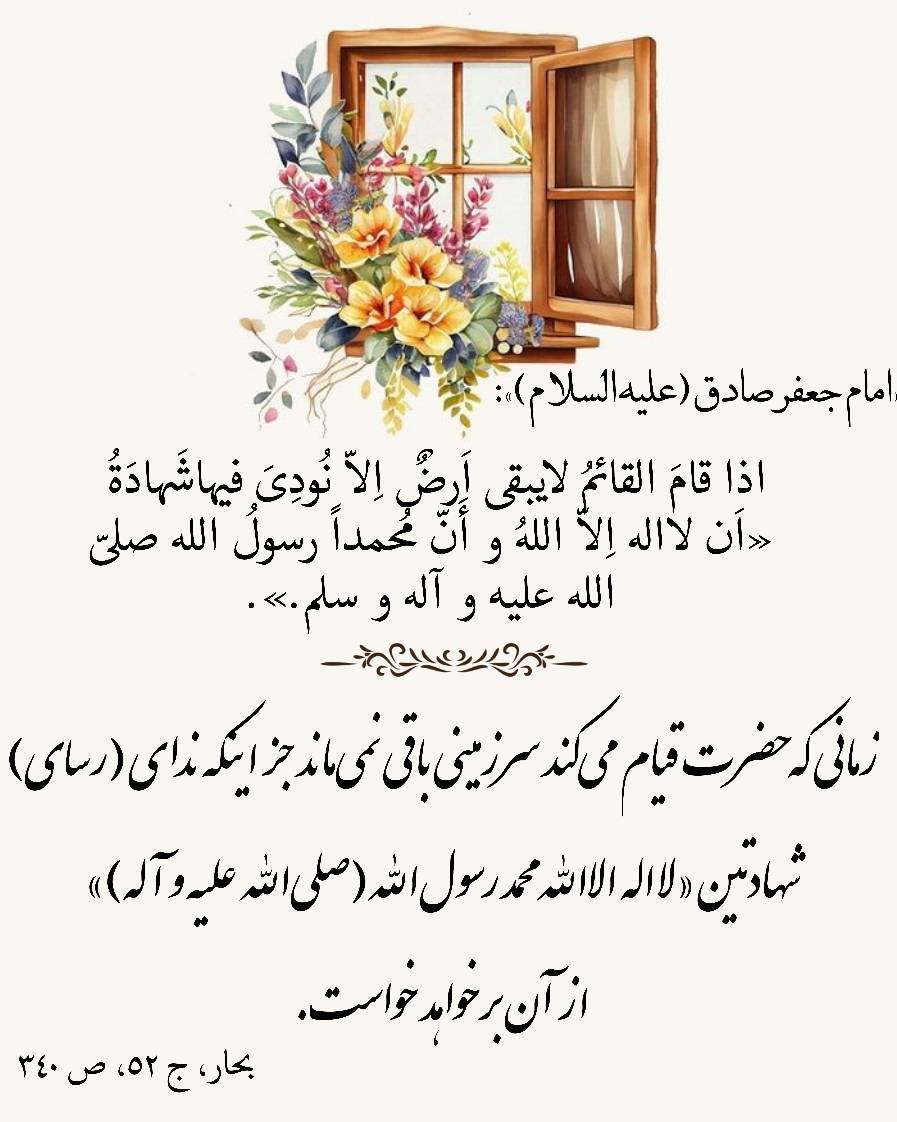 «امام جعفر صادق (علیه‌السلام)»:
اذا قامَ القائمُ لایبقی اَرضٌ اِلاّ نُودِیَ فیهاشَهادَةُ
«اَن لااله اِلاّ اللهُ و أَنّ مُحمداً رسولُ الله صلیّ
الله علیه و آله و سلم.».
زمانی که حضرت قیام می‌کند سرزمینی باقی نمی‌ماند جز اینکه ندای (رسای)
شهادتین «لا اله الا الله محمد رسول الله (صلی الله علیه و آله)»
از آن برخواهد خواست.
بحار، ج ٥٢، ص ٣٤٠